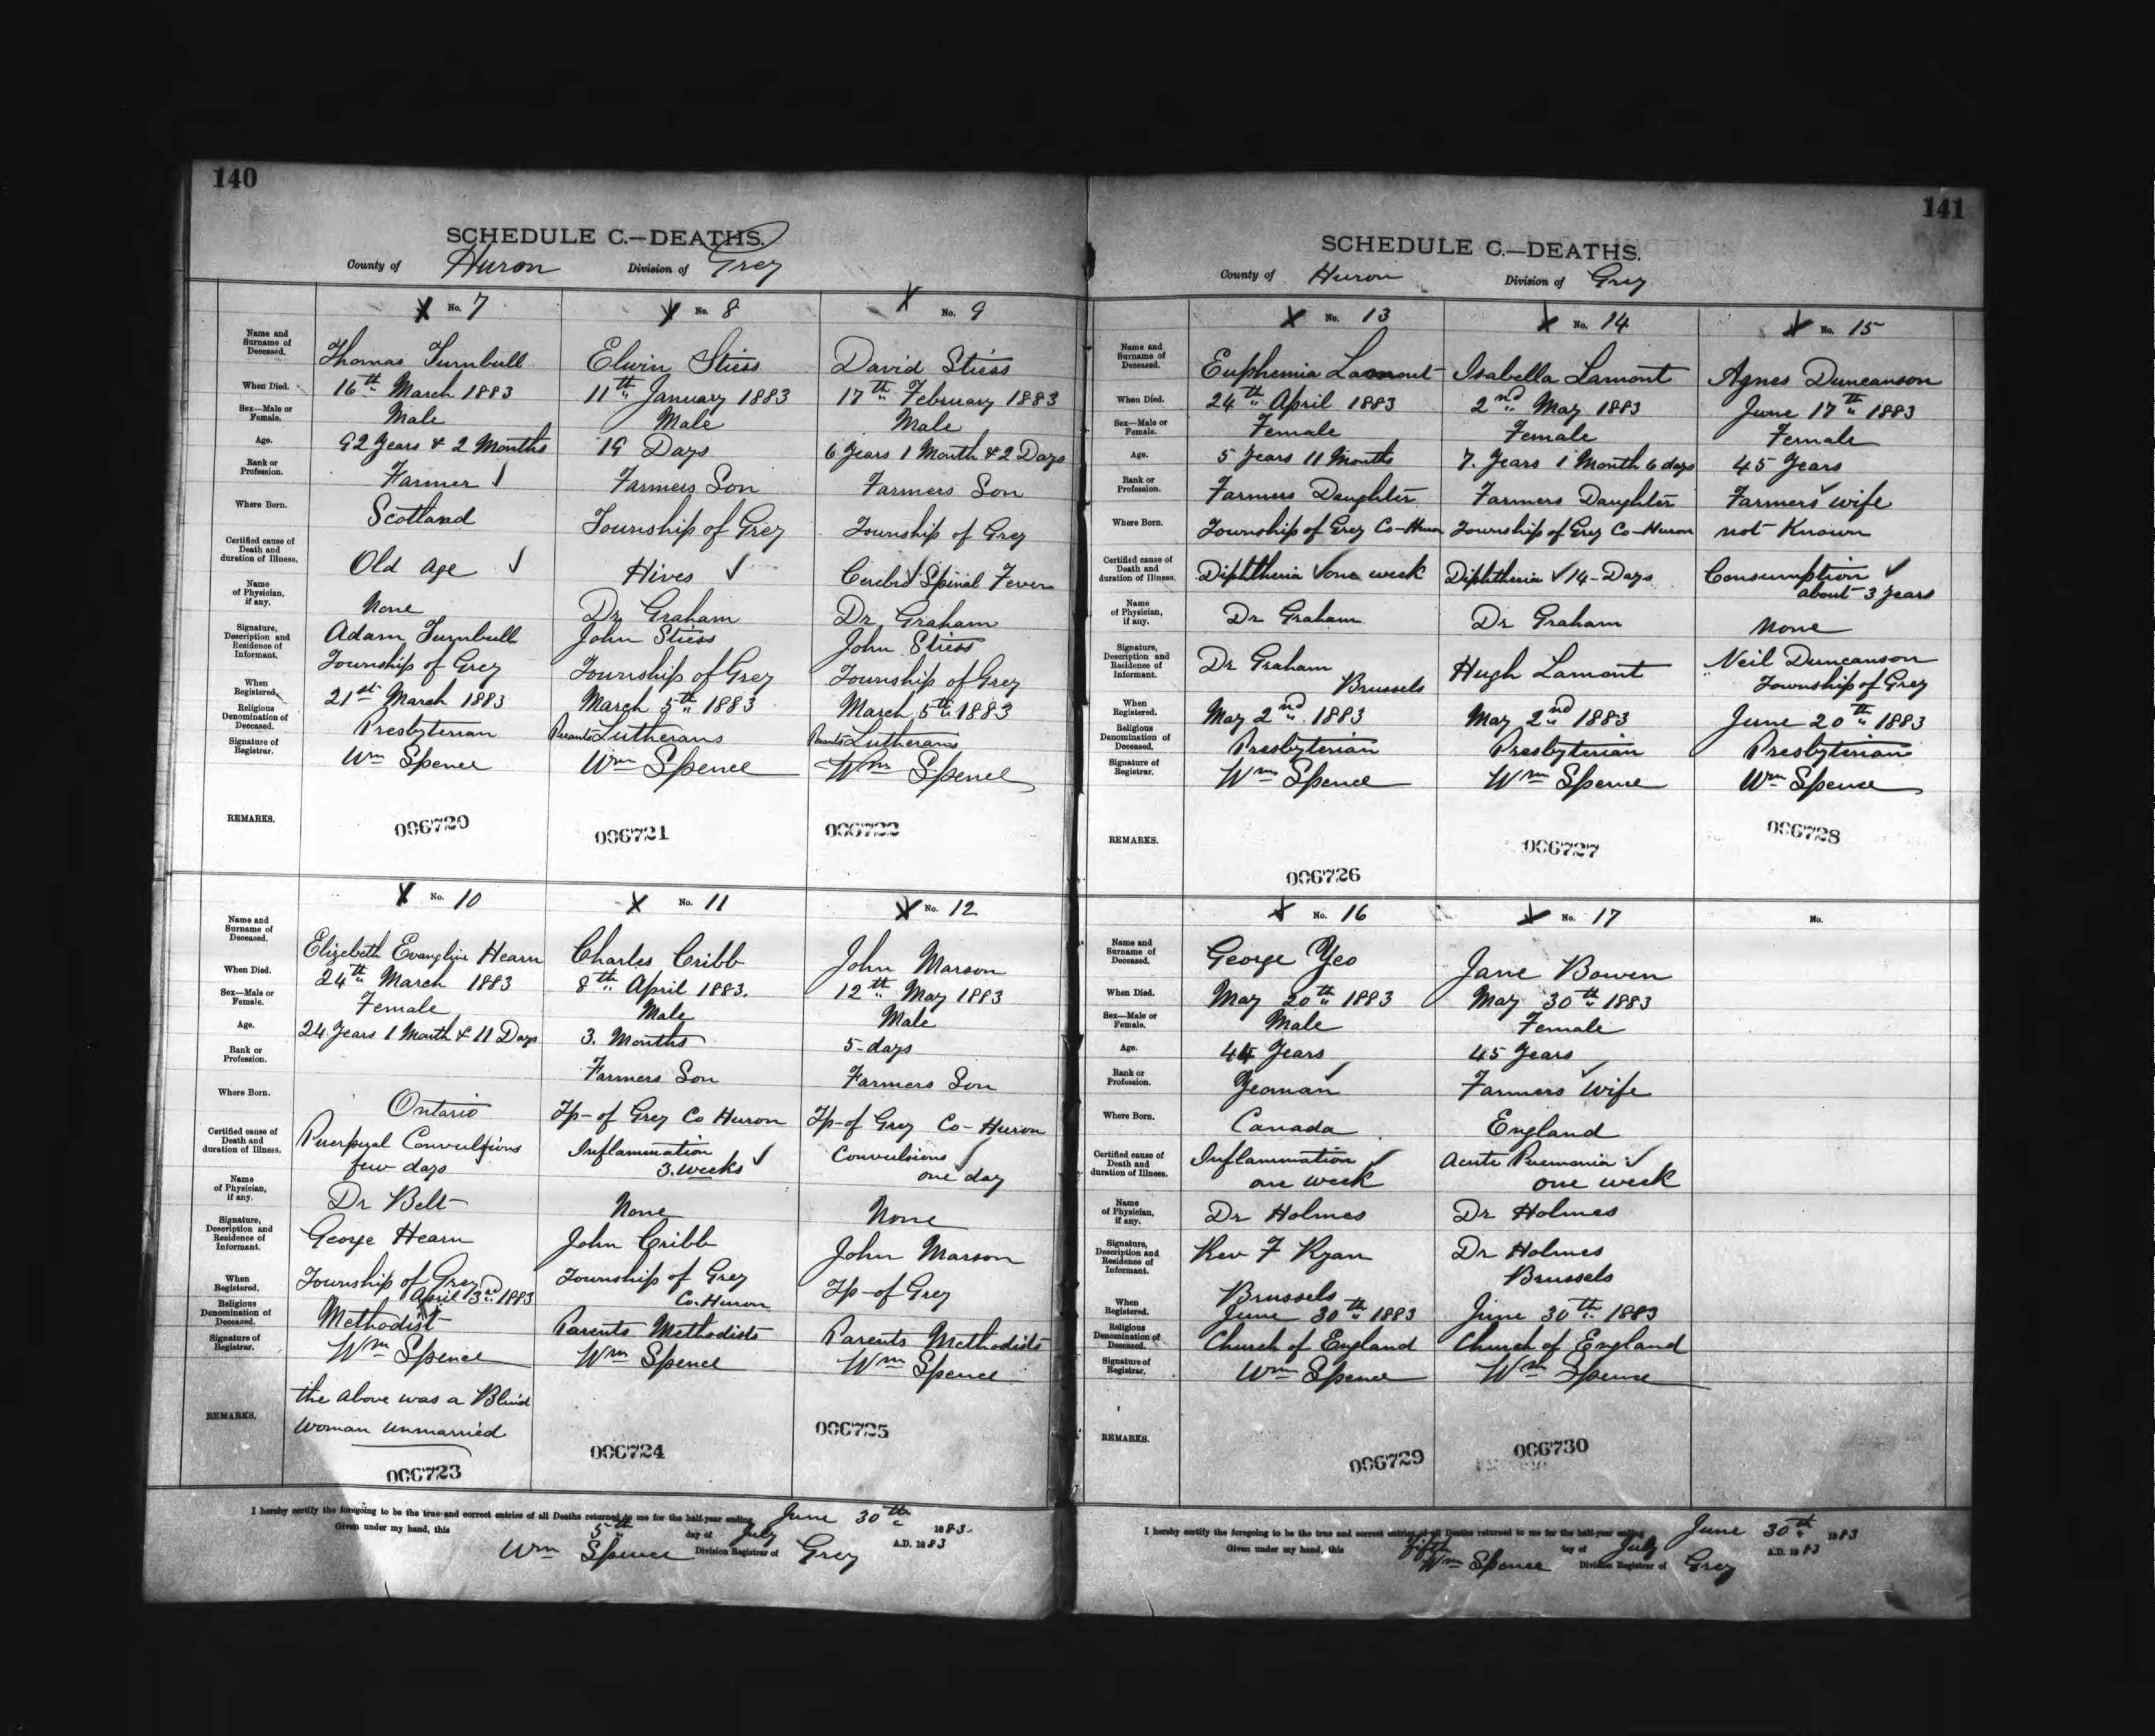 140
SCHEDULE C.—DEATHS.
County of Huron Division of Grey
No. 7 No. 8 No. 9
Name and Surname of Deceased. Thomas Turnbull Elwin Stiess David Stiess
When Died. 16th March 1883 11th January 1883 17th February 1883
Sex—Male or Female. Male Male Male
Age. 92 Years & 2 Months 19 Days 6 Years 1 Month & 2 Days
Rank or Profession. Farmer Farmers Son Farmers Son
Where Born. Scotland Township of Grey Township of Grey
Certified cause of Death and duration of Illness. Old Age Hives Cerebro Spinal Fever
Name of Physician, if any. None Dr Graham Dr Graham
Signature, Description and Residence of Informant. Adam Turnbull John Stiess John Stiess
Township of Grey Township of Grey Township of Grey
When Registered. 21st March 1883 March 5th 1883 March 5th 1883
Religious Denomination of Deceased. Presbyterian Parents Lutherans Parents Lutherans
Signature of Registrar. Wm Spence Wm Spence Wm Spence
REMARKS. 006720 006721 006722
No. 10 No. 11 No. 12
Name and Surname of Deceased. Elizebeth Evangline Hearn Charles Cribb John Marson
When Died. 24th March 1883 8th April 1883. 12th May 1883
Sex—Male or Female. Female Male Male
Age. 24 Years 1 Month & 11 Days 3. Months 5-days
Rank or Profession. Farmers Son Farmers Son
Where Born. Ontario Tp-of Grey Co Huron Tp-of Grey Co-Huron
Certified cause of Death and duration of Illness. Puerpural Convulsions Inflammation Convulsions
few days 3. weeks one day
Name of Physician, if any. Dr Belt None None
Signature, Description and Residence of Informant. George Hearn John Cribb John Marson
Township of Grey Township of Grey Co-Huron Tp-of Grey
When Registered. April 3rd 1883
Religious Denomination of Deceased. Methodist Parents Methodists Parents Methodists
Signature of Registrar. Wm Spence Wm Spence Wm Spence
REMARKS. the above was a Blind
Woman unmarried
006723 006724 006725
I hereby certify the foregoing to be the true and correct entries of all Deaths returned to me for the half-year ending June 30th 1883.
Given under my hand, this 5th day of July A.D. 1883
Wm Spence Division Registrar of Grey
141
SCHEDULE C.—DEATHS.
County of Huron Division of Grey
No. 13 No. 14 No. 15
Name and Surname of Deceased. Euphemia Lamont Isabella Lamont Agnes Duncanson
When Died. 24th April 1883 2nd May 1883 June 17th 1883
Sex—Male or Female. Female Female Female
Age. 5 Years 11 Months 7. Years 1 Month 6 days 45 Years
Rank or Profession. Farmers Daughter Farmers Daughter Farmers wife
Where Born. Township of Grey Co-Huron Township of Grey Co-Huron not Known
Certified cause of Death and duration of Illness. Diphtheria one week Diphtheria 14-Days Consumption
about 3 years
Name of Physician, if any. Dr Graham Dr Graham None
Signature, Description and Residence of Informant. Dr Graham Brussels Hugh Lamont Neil Duncanson
Township of Grey
When Registered. May 2nd 1883 May 2nd 1883 June 20th 1883
Religious Denomination of Deceased. Presbyterian Presbyterian Presbyterian
Signature of Registrar. Wm Spence Wm Spence Wm Spence
REMARKS. 006726 006727 006728
No. 16 No. 17 No.
Name and Surname of Deceased. George Yeo Jane Bowen
When Died. May 20th 1883 May 30th 1883
Sex—Male or Female. Male Female
Age. 44 Years 45 Years
Rank or Profession. Yeoman Farmers Wife
Where Born. Canada England
Certified cause of Death and duration of Illness. Inflammation Acute Pnemonia
one week one week
Name of Physician, if any. Dr Holmes Dr Holmes
Signature, Description and Residence of Informant. Rev F Ryan Dr Holmes
Brussels Brussels
When Registered. June 30th 1883 June 30th 1883
Religious Denomination of Deceased. Church of England Church of England
Signature of Registrar. Wm Spence Wm Spence
REMARKS. 006729 006730
I hereby certify the foregoing to be the true and correct entries of all Deaths returned to me for the half-year ending June 30th 1883
Given under my hand, this fifth day of July A.D. 1883
Wm Spence Division Registrar of Grey